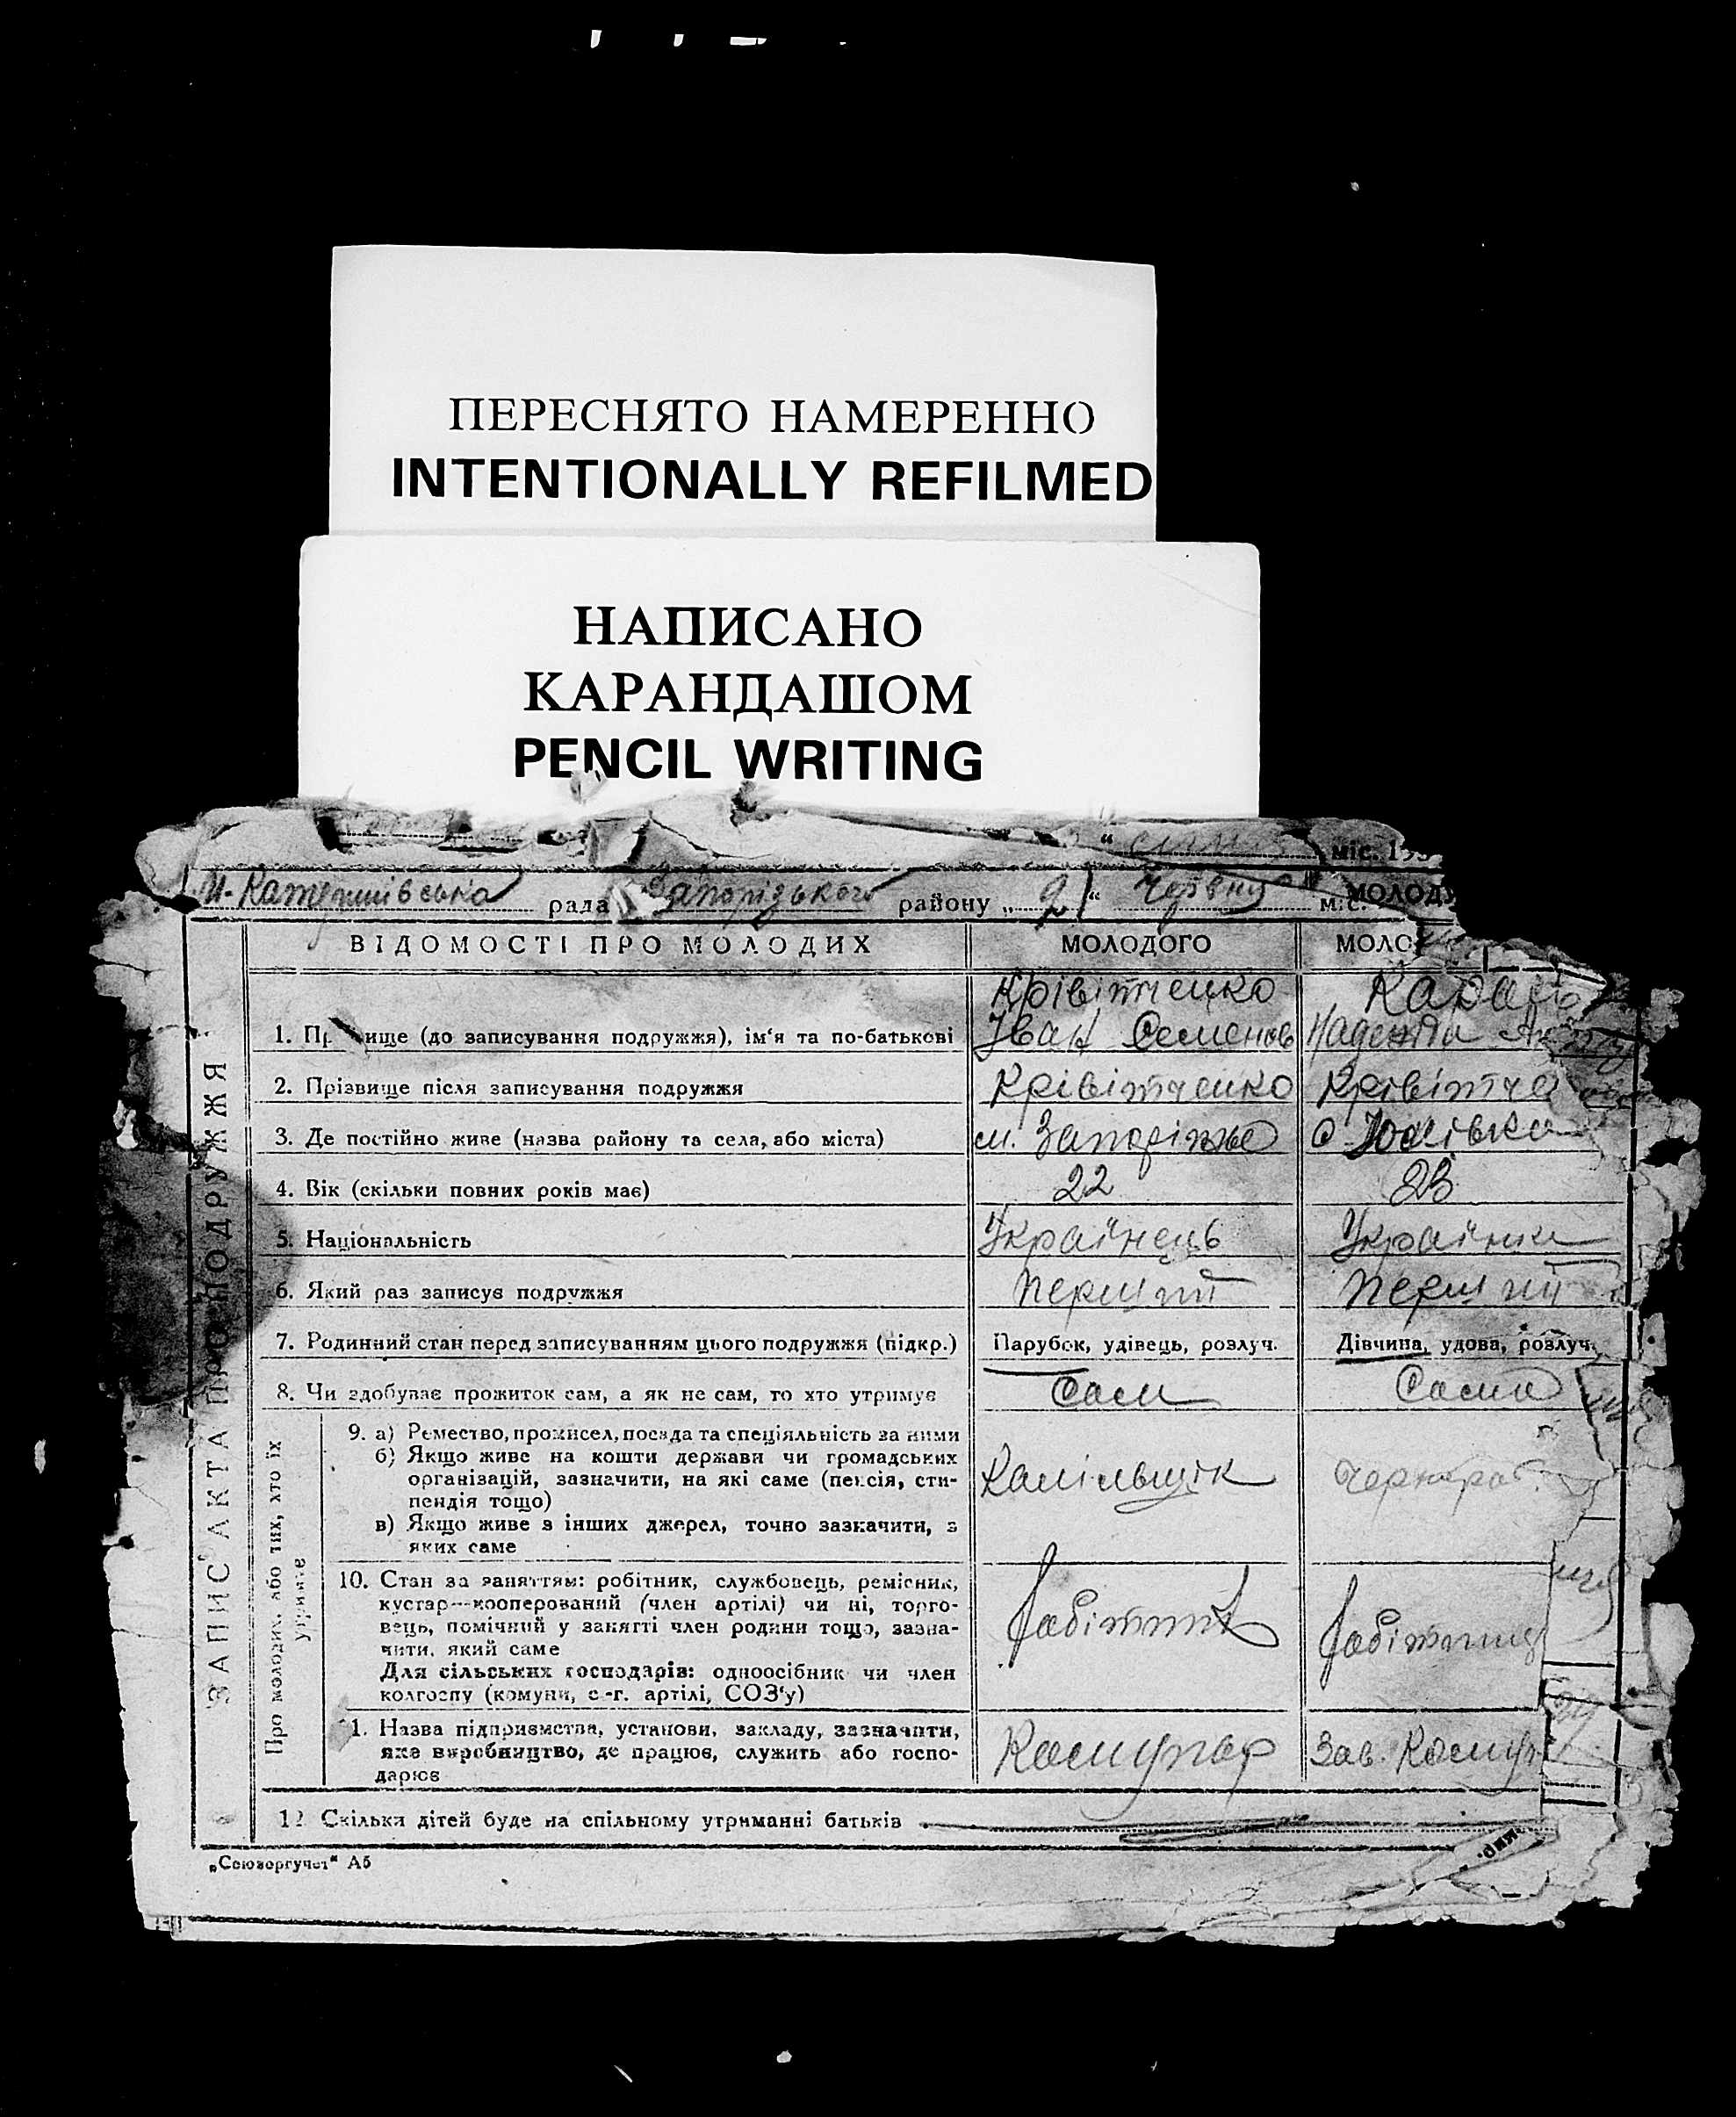 ПЕРЕСНЯТО НАМЕРЕННО
INTENTIONALLY REFILMED
НАПИСАНО
КАРАНДАШОМ
PENCIL WRITING
міс. 193
рада Запорізького району „ 2 “ Червня міс. МОЛОД
ВІДОМОСТІ ПРО МОЛОДИХ МОЛОДОГО МОЛО
Крівітченко
1. Пр ище (до записування подружжя), ім‘я та по-батькові Іван Семенов Надежда
2. Прізвище після записування подружжя Крівітченко Крівітче
3. Де постійно живе (назва району та села, або міста) м. Запоріжже с.
4. Вік (скільки повних років має) 22 23
5. Національність Українець Українка
6. Який раз записує подружжя перший перший
7. Родинний стан перед записуванням цього подружжя (підкр.) Парубок, удівець, розлуч. Дівчина, удова, розлуч.
8. Чи здобуває прожиток сам, а як не сам, то хто утримує Сам Сама
9. а) Ремество, промисел, посада та спеціяльність за ними
б) Якщо живе на кошти держави чи громадських
організацій, зазначити, на які саме (пенсія, сти-
пендія тощо)
в) Якщо живе з інших джерел, точно зазначити, з
яких саме
Чернораб.
10. Стан за заняттям: робітник, службовець, ремісник,
кустар—кооперований (член артілі) чи ні, торго-
вець, помічний у занятті член родини тощо, зазна-
чити, який саме
Для сільських господарів: одноосібник чи член
колгоспу (комуни, с.-г. артілі, СОЗ‘у)
Робітник Робітниця
11. Назва підприємства, установи, закладу, зазначити,
яке виробництво, де працює, служить або госпо-
дарює
Комунар Зав. Комун
12 Скільки дітей буде на спільному утриманні батьків
„Союзоргучет“ А5
ЗАПИС АКТА ПРО ПОДРУЖЖЯ
Про молодих, або тих, хто їх
утримує